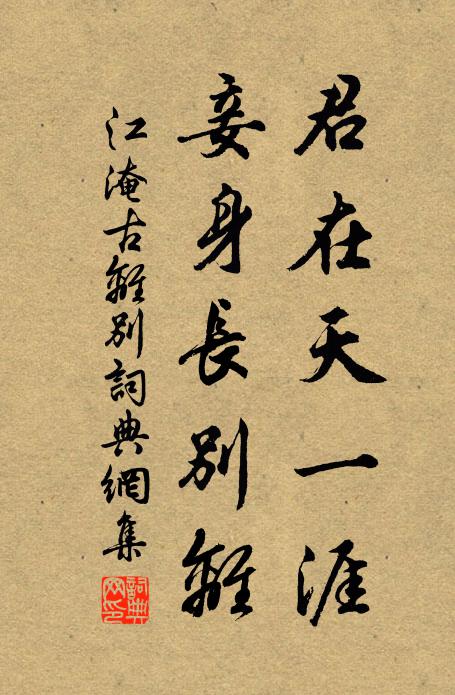 君在天一涯
妾身長別離
江淹古離別詞典網集
詞典網印